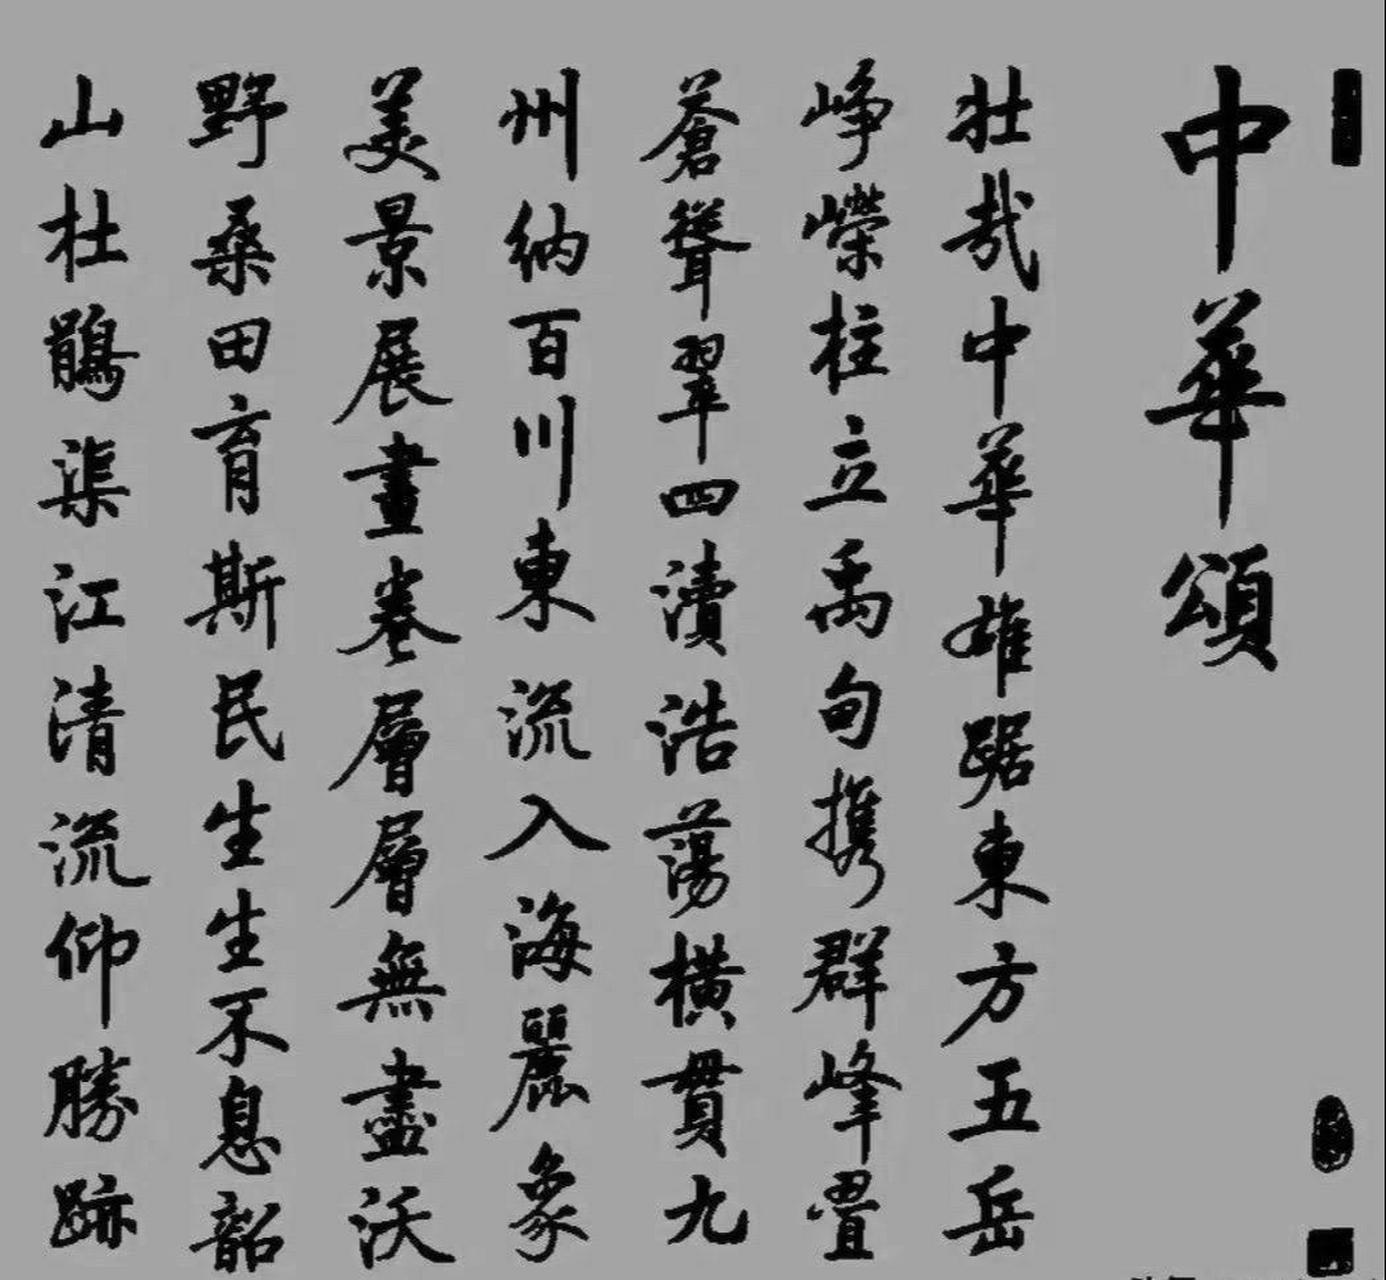 中華頌
壯哉中華雄踞東方五岳
崢嶸柱立禹甸攜群峰疊
蒼聳翠四瀆浩蕩橫貫九
州納百川東流入海麗象
美景展畫卷層層無盡沃
野桑田育斯民生生不息韶
山杜鵑渠江清流仰勝跡